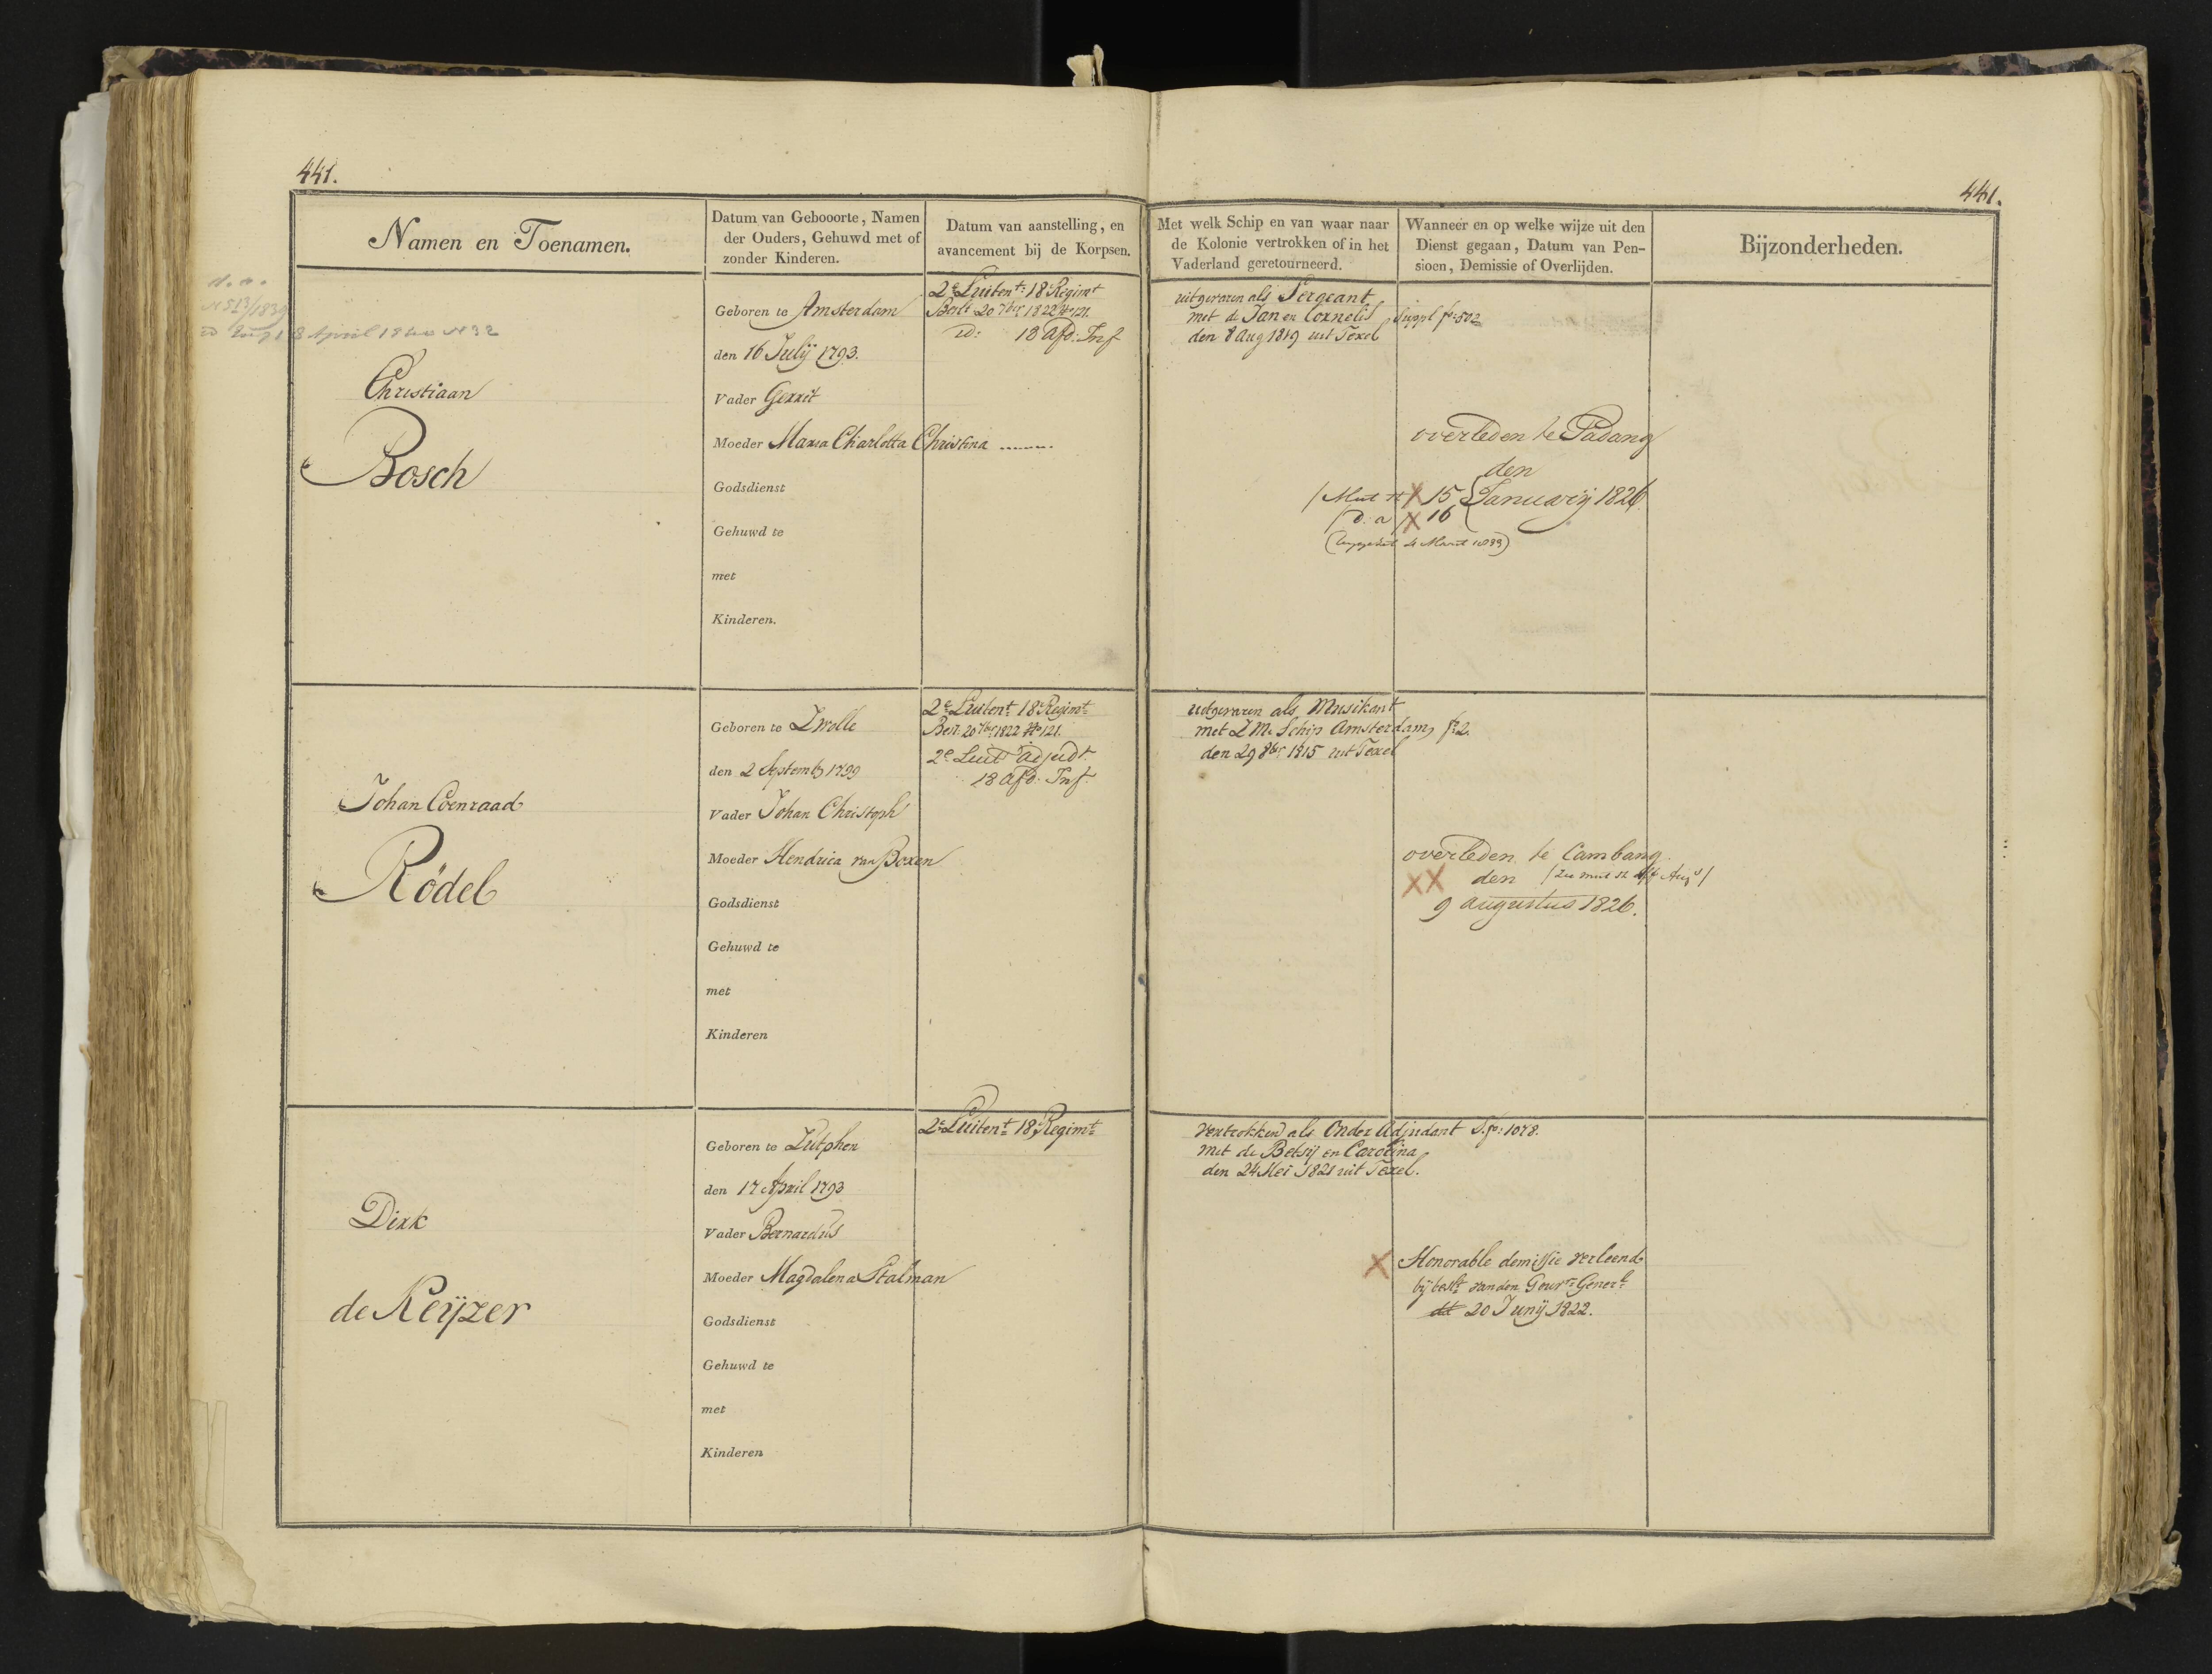 441.
441.
Namen en Toenamen.
Datum van Gebooorte, Namen
der Ouders, Gehuwd met of
zonder Kinderen.
Datum van aanstelling, en
avancement bij de Korpsen.
Met welk Schip en van waar naar
de Kolonie vertrokken of in het
Vaderland geretourneerd.
Wanneer en op welke wijze uit den
Dienst gegaan, Datum van Pen-
sioen, Demissie of Overlijden.
Bijzonderheden.
N 513/1839
8 April 18 N 32
Christiaan
Bosch
Geboren te Amsterdam
den 16 Julij 1793.
Vader Gerrit
Moeder Maria Charlotta Christina
Godsdienst
Gehuwd te
met
Kinderen.
2e Luitent 18 Regimt
Beslt 20 7ber 1822 No 121.
D: 18 Afd. Inf
uitgevaren als Sergeant
met de Jan en Cornelis Suppl fo 502
den 8 Aug 1819 uit Texel
overleden te Padang
den
/ Mut st / X 15 Januarij 1826.
/ d: a / X 16
Maart 1833)
Johan Coenraad
Rödel
Geboren te Zwolle
den 2 Septemb 1799
Vader Johan Christoph
Moeder Hendrica van Boxen
Godsdienst
Gehuwd te
met
Kinderen
2e Luitent 18 Regimt
Besl. 20 7ber 1822 No 121.
2e Luit Adjudt
18 Afd. Inf.
uitgevaren als Musikant
met Z.M. Schip Amsterdam, fo 2.
den 29 8ber 1815 uit Texel
overleden te Cambang
XX den / Zie mut st Augs /
9 Augustus 1826.
Dirk
de Keijzer
Geboren te Zutphen
den 17 April 1793
Vader Bernardus
Moeder Magdalena Stalman
Godsdienst
Gehuwd te
met
Kinderen
2e Luitent 18 Regimt
Vertrokken als Onder Adjudant S. fo: 1078.
met de Betsij en Carolina
den 24 Mei 1821 uit Texel.
X Honorable demissie verleend
bij beslt van den Gouvr Generl
dd 20 Junij 1822.